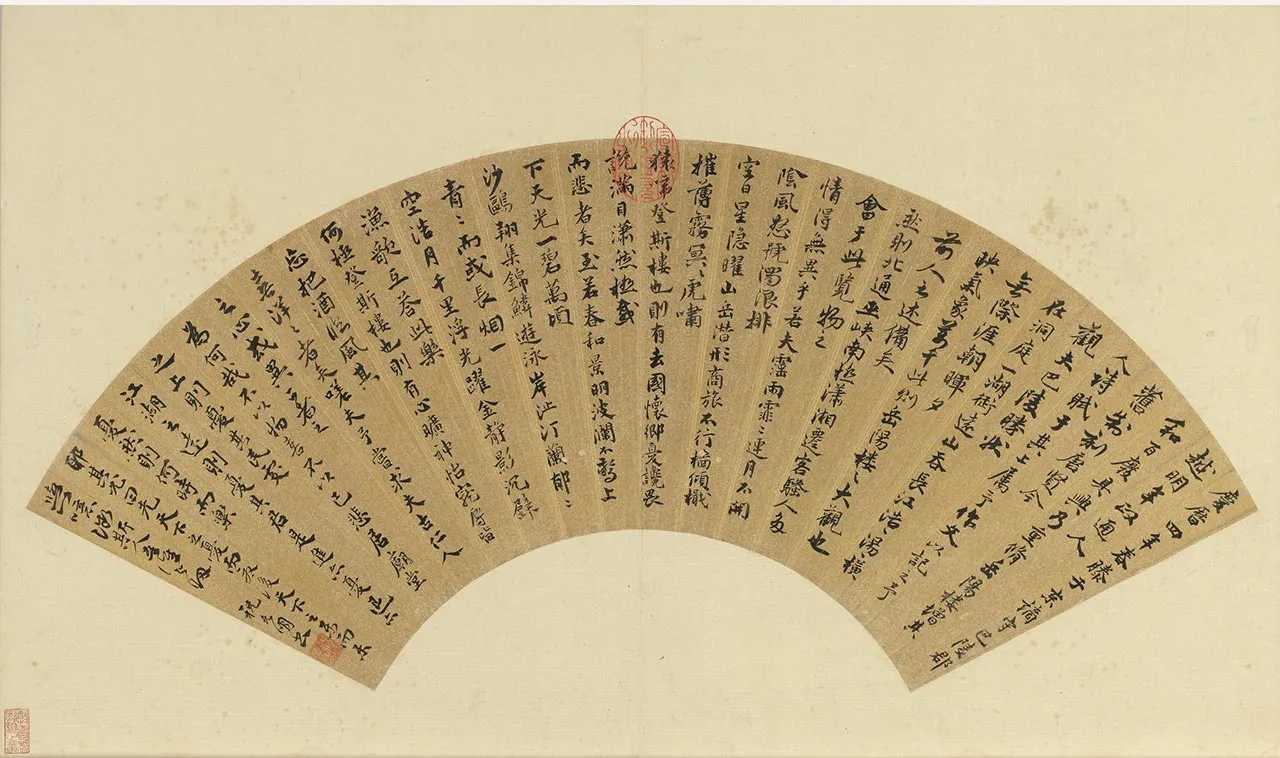 慶曆四年春滕子京謫守巴陵郡
越明年政通人
和百廢具興乃重脩岳陽樓增其
舊制刻唐賢今
人詩賦于其上屬予作文以記之予
觀夫巴陵勝狀
在洞庭一湖銜遠山吞長江浩湯橫
無際涯朝暉夕
映氣象萬千此則岳陽樓之大觀也
前人之述備矣
然則北通巫峽南極瀟湘遷客騷人多
會于此覽物之
情得無異乎若夫霪雨霏〻連月不開
陰風怒號濁浪排
空日星隱曜山岳潛形商旅不行檣傾檝
摧薄霧冥〻虎嘯
猿啼登斯樓也則有去國懷鄉憂讒畏
譏滿目瀟然極感
而悲者矣至若春和景明波瀾不驚上
下天光一碧萬頃
沙鷗翔集錦鱗遊泳岸芷汀蘭郁〻
青〻而或長烟一
空皓月千里浮光躍金靜影沉璧
漁歌互答此樂
何極登斯樓也則有心曠神怡寵辱皆
忘把酒臨風其
喜洋〻者矣嗟夫予嘗求夫古仁人
之心或異二者之
為何哉不以物喜不以己悲居廟堂
之上則憂其民處
江湖之遠則憂其君是進亦憂退亦
憂然則何時而樂
耶其必曰先天下之憂而憂後天下之樂而樂
歟噫微斯人吾誰與歸
祝允明書